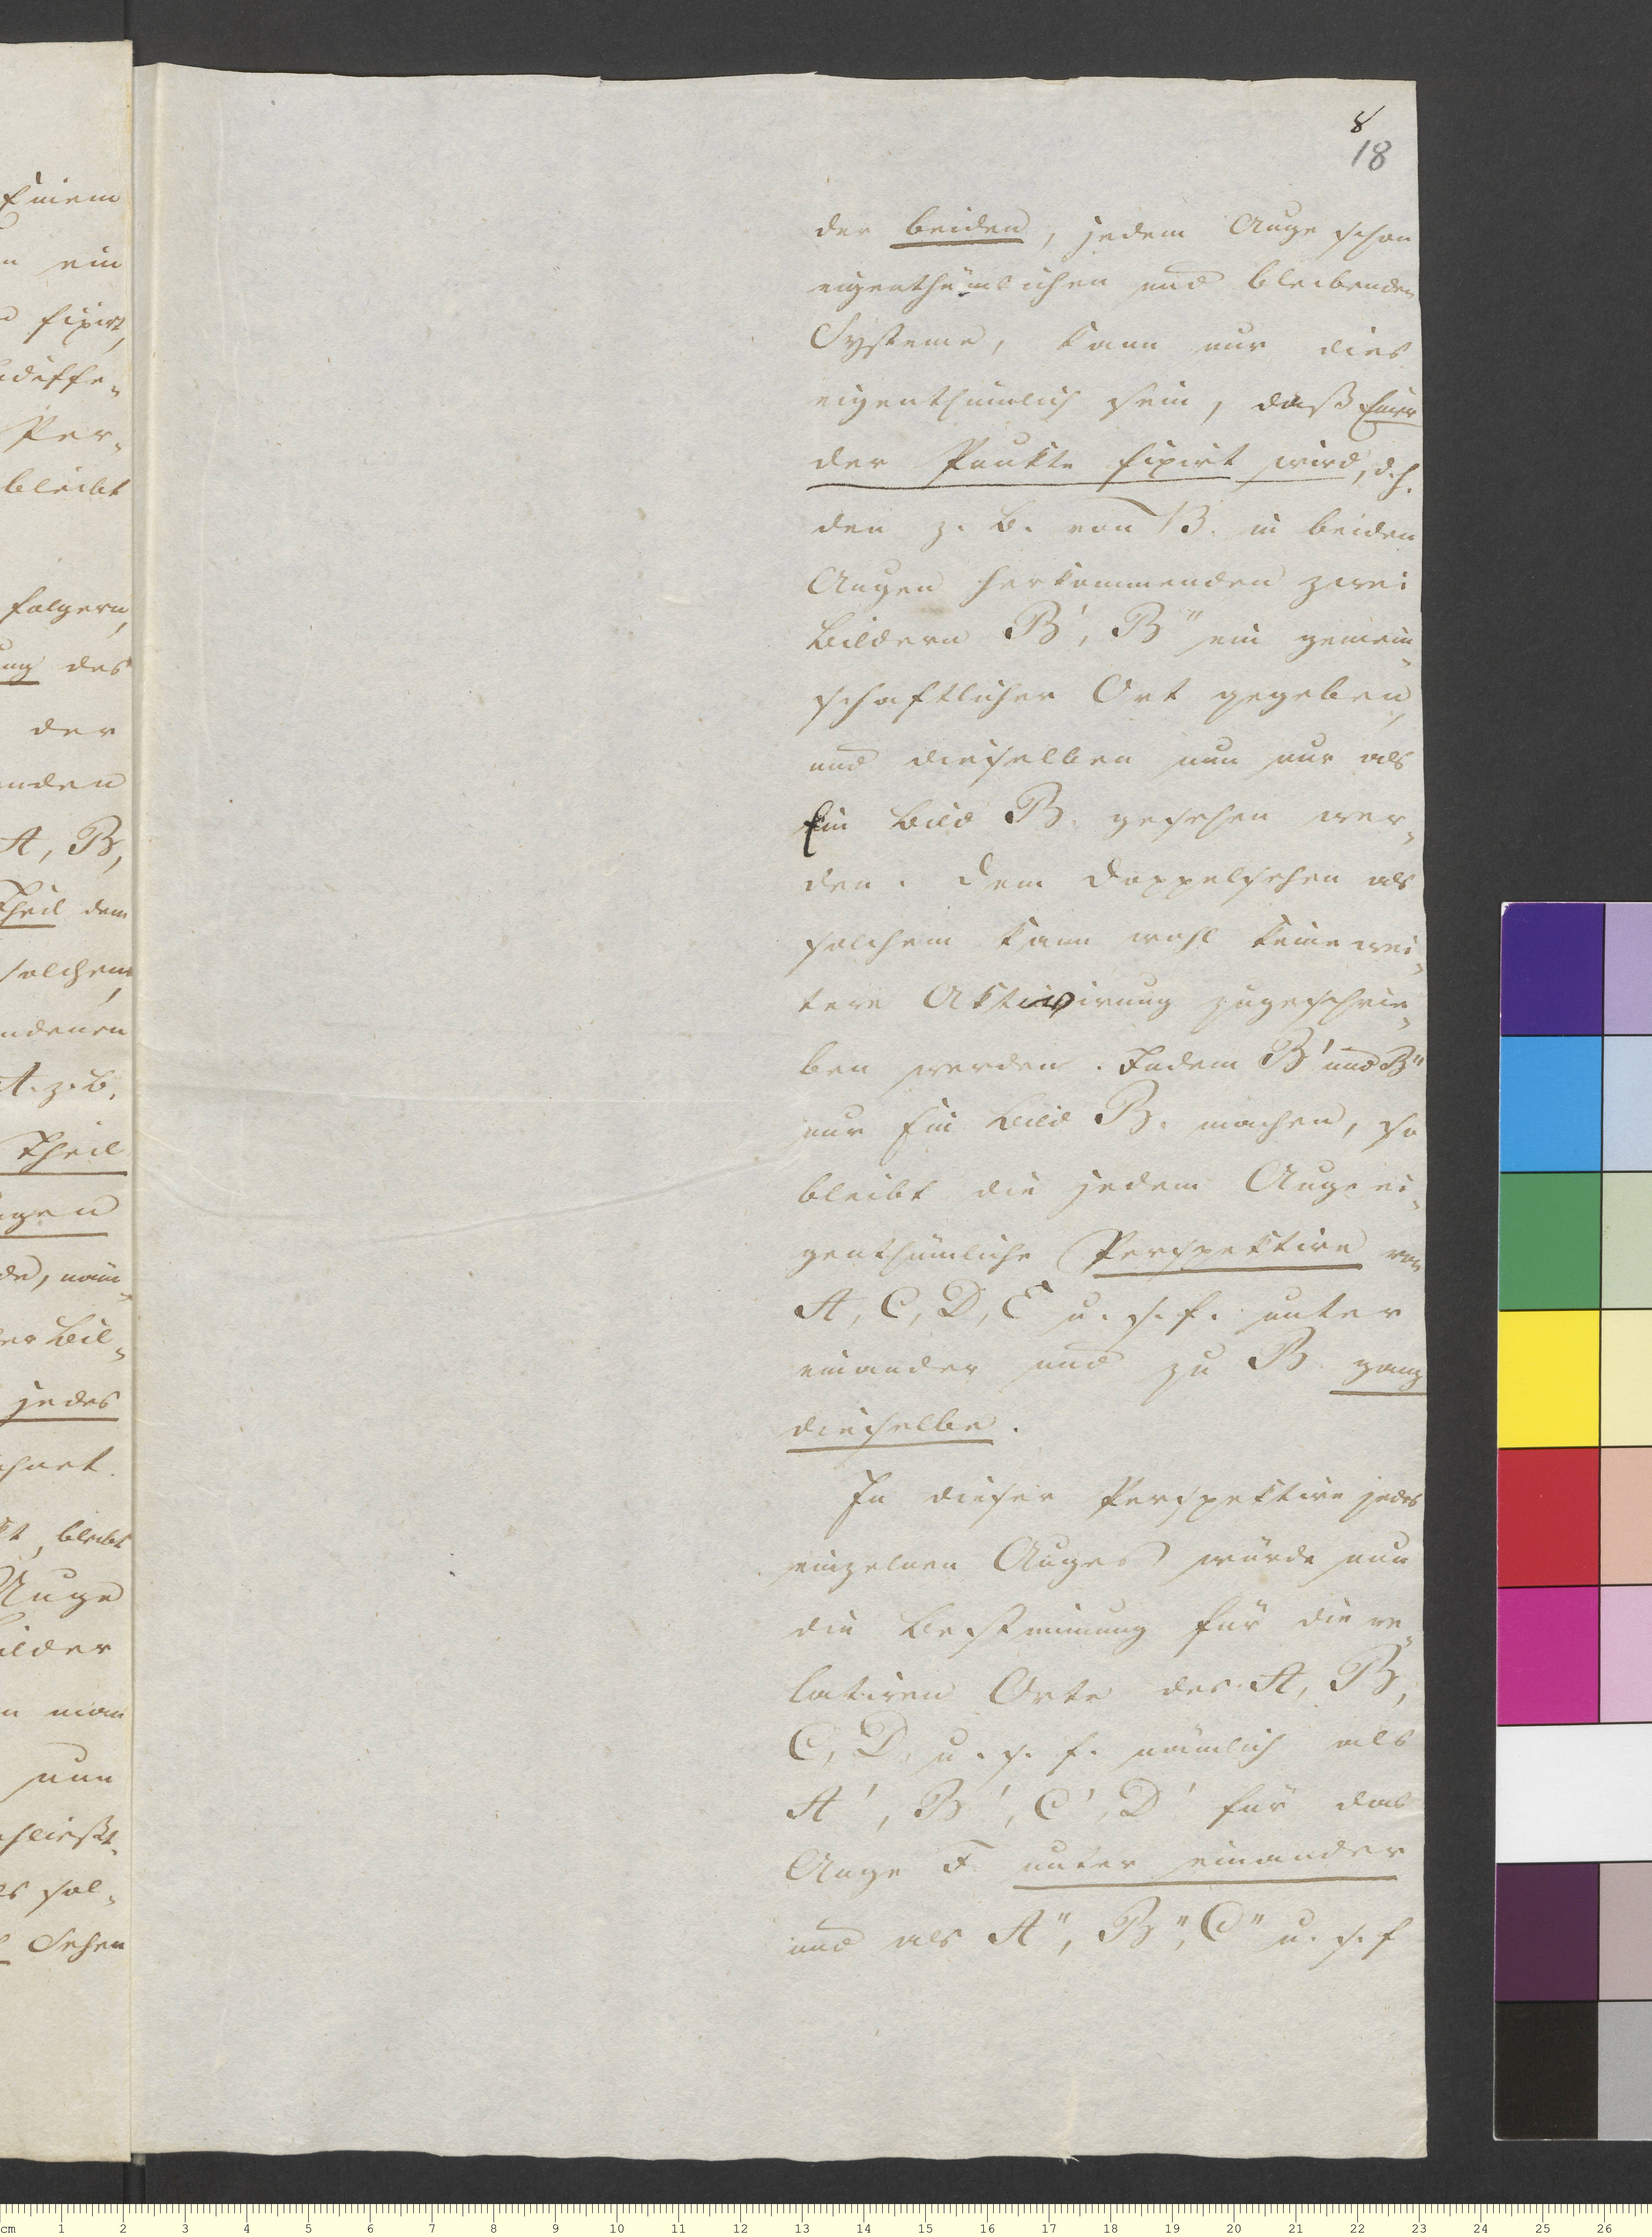 8
18
der beiden, jedem Auge schon
eigenthümlichen und bleibenden
Systeme, kann nur dies
eigenthümlich sein, daß Einer
der Punkte fixirt wird, d.h.
den z. B. von B. in beiden
Augen herkommenden zwei
Bildern B', B'' ein gemein-
schaftlicher Ort gegeben,
und dieselben nun nur als
Ein Bild B. gesehen wer-
den. Dem Doppelsehen als
solchem kann wohl keine wei-
tere Aktivirung zugeschrie-
ben werden. Indem B' und B''
nur Ein Bild B. machen, so
bleibt die jedem Auge ei-
genthümliche Perspektive von
A, C, D, E u. s. f. unter
einander und zu B. ganz
dieselbe.
In dieser Perspektive jedes
einzelnen Auges würde nun
die Bestimmung für die re-
lativen Orte des A, B,
C, D. u. s. f. nämlich als
A', B', C', D' für das
Auge F. unter einander
und als A'', B'', C'' u. s. f
Einem
ein
fixirt,
Per-
bleibt
folgern,
des
der
A, B,
Theil dem
solchem,
A. z. B.
Theil
jedes
bleibt
Auge
man
nun
sol-
Sehen